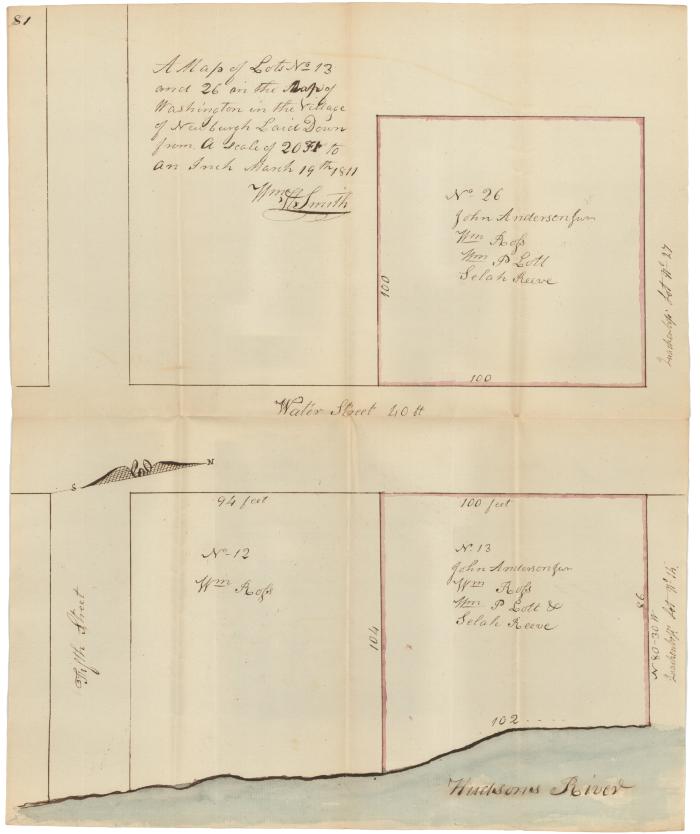 81
A Map of Lots No 13
and 26 on the Map of
Washington in the Village
of Newburgh Laid Down
from A Scale of 20 Ft to
an Inch March 19th 1811
Wm Smith
No 26
John Anderson Jun
Wm Ross
Wm P Lott
Selah Reeve
100
100
Lot No 27
Water Street 40 ft
S
N
94 feet
100 feet
No 12
Wm Ross
No 13
John Anderson Jun
Wm Ross
Wm P Lott &
Selah Reeve
Fifth Street
104
86
N 80-30 W
Lot No 14
102
Hudsons River